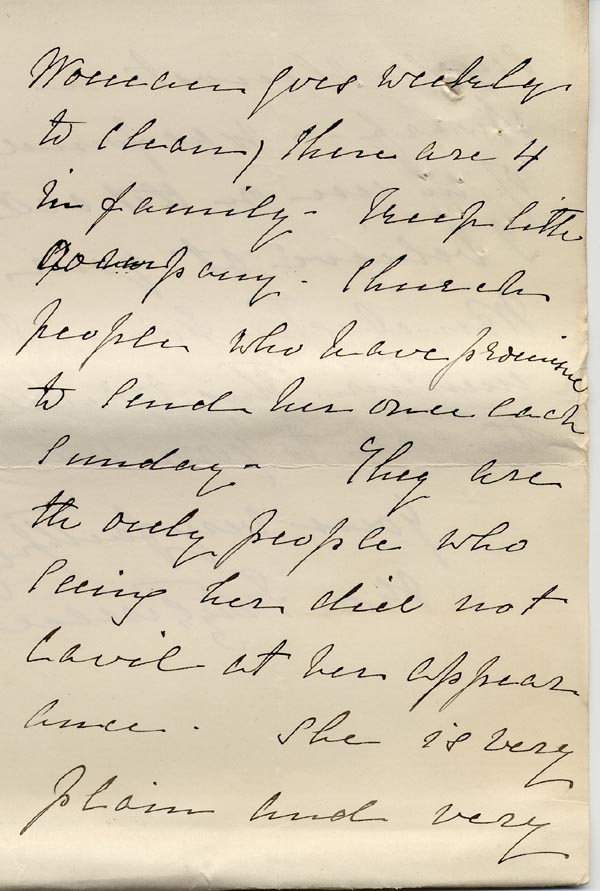 Woman goes weekly
to clean) There are 4
in family - Keep little
company - Church
people who have promise
to send her once each
Sunday - They are
the only people who
seeing her did not
cavil at her appear
ance - She is very
plain and very